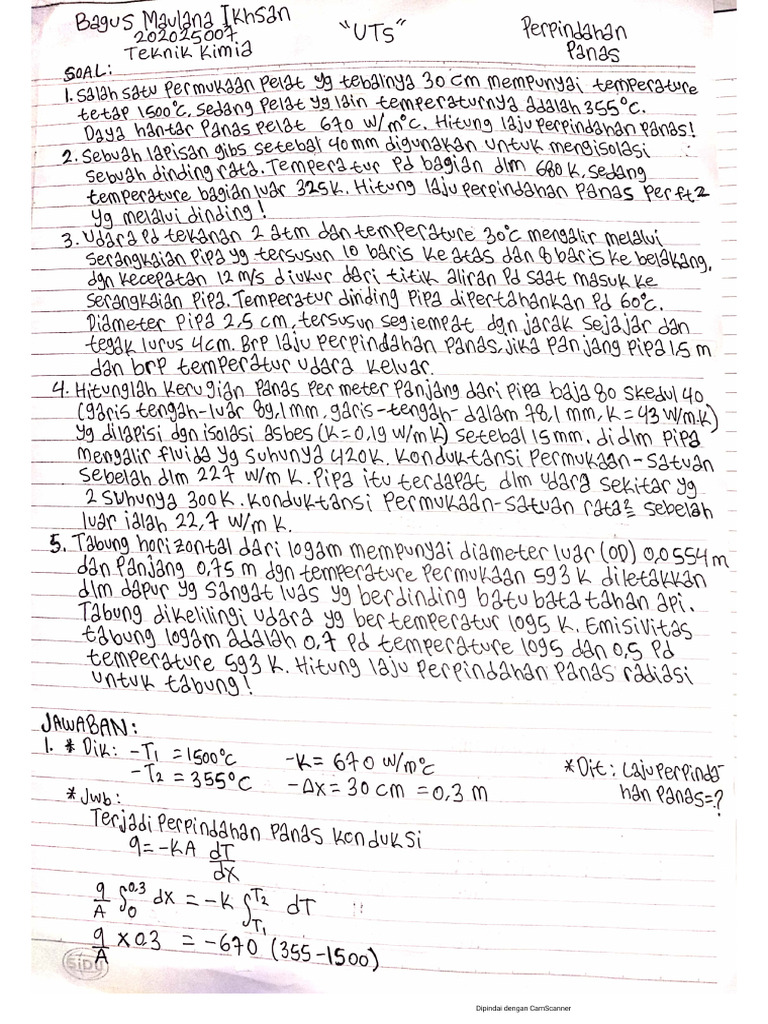 Bagus Maulana Ikhsan
202025007
Teknik Kimia
"UTS"
Perpindahan
Panas
SOAL:
1. Salah satu permukaan pelat yg tebalnya 30 cm mempunyai temperature
tetap 1500°C, sedang pelat yg lain temperaturnya adalah 355°C.
Daya hantar panas pelat 670 W/m°C. Hitung laju perpindahan panas!
2. Sebuah lapisan gibs setebal 40mm digunakan untuk mengisolasi
sebuah dinding rata. Temperatur pd bagian dlm 680 K, sedang
temperature bagian luar 325K. Hitung laju perpindahan panas per ft2
yg melalui dinding!
3. Udara pd tekanan 2 atm dan temperature 30°C mengalir melalui
serangkaian pipa yg tersusun 10 baris ke atas dan 8 baris ke belakang,
dgn kecepatan 12 m/s diukur dari titik aliran pd saat masuk ke
serangkaian pipa. Temperatur dinding pipa dipertahankan pd 60°C.
Diameter pipa 2,5 cm, tersusun segiempat dgn jarak sejajar dan
tegak lurus 4cm. Brp laju perpindahan panas, jika panjang pipa 1,5 m
dan brp temperatur udara keluar.
4. Hitunglah kerugian panas per meter panjang dari pipa baja 80 skedul 40
(garis tengah-luar 89,1 mm, garis-tengah-dalam 78,1 mm, K = 43 W/m.K)
yg dilapisi dgn isolasi asbes (K=0,19 W/m K) setebal 15 mm. di dlm pipa
mengalir fluida yg suhunya 420K. Konduktansi permukaan-satuan
sebelah dlm 227 W/m K. Pipa itu terdapat dlm udara sekitar yg
2 suhunya 300 K. Konduktansi permukaan-satuan rata2 sebelah
luar ialah 22,7 W/m K.
5. Tabung horizontal dari logam mempunyai diameter luar (OD) 0,0554 m
dan panjang 0,75 m dgn temperature permukaan 593 K diletakkan
dlm dapur yg sangat luas yg berdinding batu bata tahan api.
Tabung dikelilingi udara yg bertemperatur 1095 K. Emisivitas
tabung logam adalah 0,7 pd temperature 1095 dan 0,5 pd
temperature 593 K. Hitung laju perpindahan panas radiasi
untuk tabung!
JAWABAN:
1. * Dik: - T1 = 1500°C - K = 670 W/m°C * Dit: Laju perpinda-
- T2 = 355°C - Δx = 30 cm = 0,3 m han panas = ?
* Jwb:
Terjadi perpindahan panas konduksi
q = -KA dT/dx
q/A ∫₀^0,3 dx = -K ∫_T1^T2 dT
q/A x 0.3 = -670 (355-1500)
SiDU
Dipindai dengan CamScanner